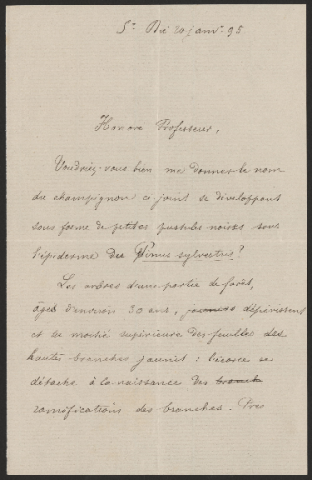 St Dié 20 janv. 98
Honoré Professeur,
Voudriez-vous bien me donner le nom
du champignon ci joint se développant
sous forme de petites pustules noires sous
l'épiderme des Pinus sylvestris ?
Les arbres d'une partie de forêt,
âgés d'environ 30 ans, dépérissent
et la moitié supérieure des feuilles des
hautes branches jaunit : l'écorce se
détache à la naissance des branch
ramifications des branches. Des